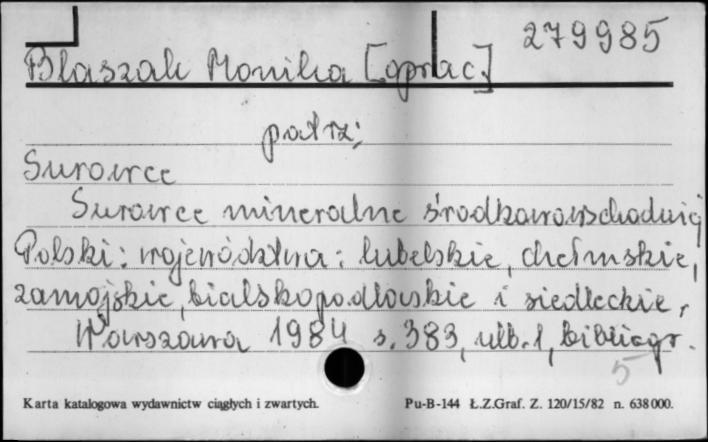 279985
Błaszak Monika [oprac.]
patrz:
Surowce
Surowce mineralne środkowowschodniej
Polski: województwa: lubelskie, chełmskie,
zamojskie, bialskopodlaskie i siedleckie,
Warszawa 1984 s. 383, nlb. 1, bibliogr.
5
Karta katalogowa wydawnictw ciągłych i zwartych. Pu-B-144 Ł.Z.Graf. Z. 120/15/82 n. 638 000.